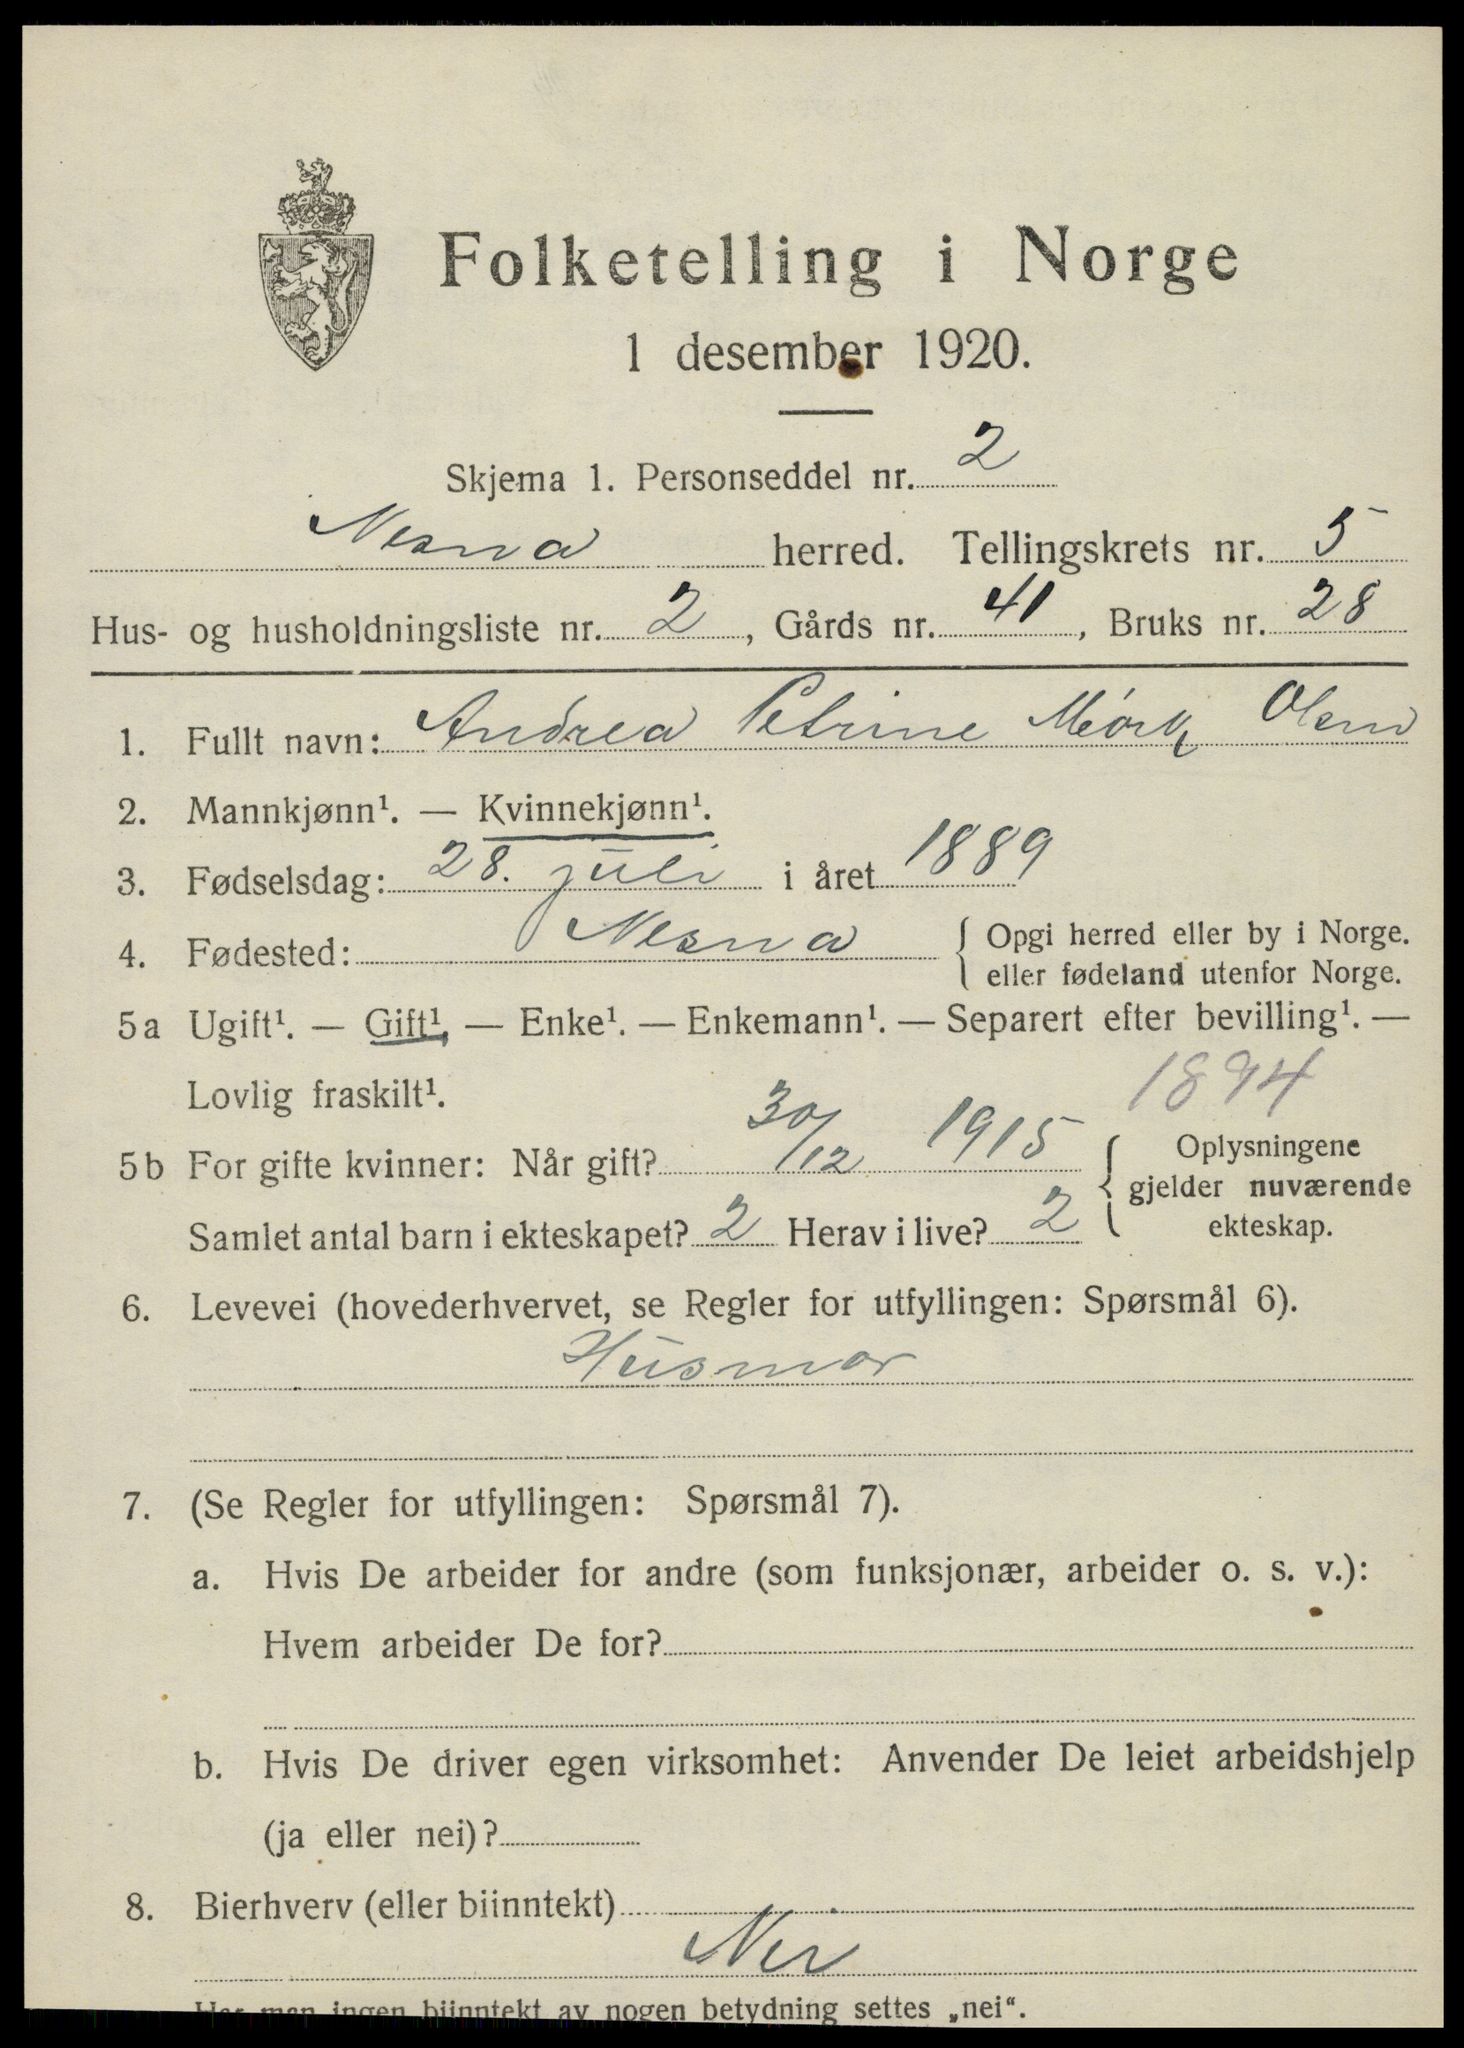 Folketelling i Norge
1 desember 1920.
Skjema 1. Personseddel nr. 2
Nesna herred. Tellingskrets nr. 5
Hus- og husholdningsliste nr. 2, Gårds nr. 41, Bruks nr. 28
1. Fullt navn: Andrea Petrine Mørk Olsen
2. Mannkjønn¹. — Kvinnekjønn¹.
3. Fødselsdag: 28. juli i året 1889
4. Fødested: Nesna { Opgi herred eller by i Norge.
eller fødeland utenfor Norge.
5a Ugift¹. — Gift¹, — Enke¹. — Enkemann¹. — Separert efter bevilling¹. —
Lovlig fraskilt¹. 1894
5b For gifte kvinner: Når gift? 30/12 1915 { Oplysningene
gjelder nuværende
Samlet antal barn i ekteskapet? 2 Herav i live? 2 ekteskap.
6. Levevei (hovederhvervet, se Regler for utfyllingen: Spørsmål 6).
Husmor
7. (Se Regler for utfyllingen: Spørsmål 7).
a. Hvis De arbeider for andre (som funksjonær, arbeider o. s. v.):
Hvem arbeider De for?
b. Hvis De driver egen virksomhet: Anvender De leiet arbeidshjelp
(ja eller nei)?
8. Bierhverv (eller biinntekt)
Nei
Har man ingen biinntekt av nogen betydning settes „nei“.